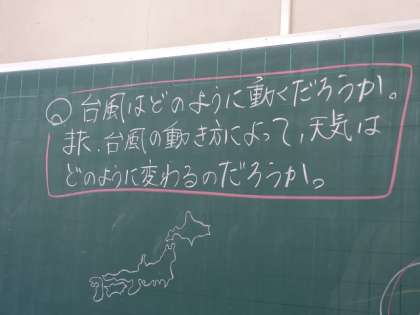 台風はどのように動くだろうか。
また、台風の動き方によって、天気は
どのように変わるのだろうか。